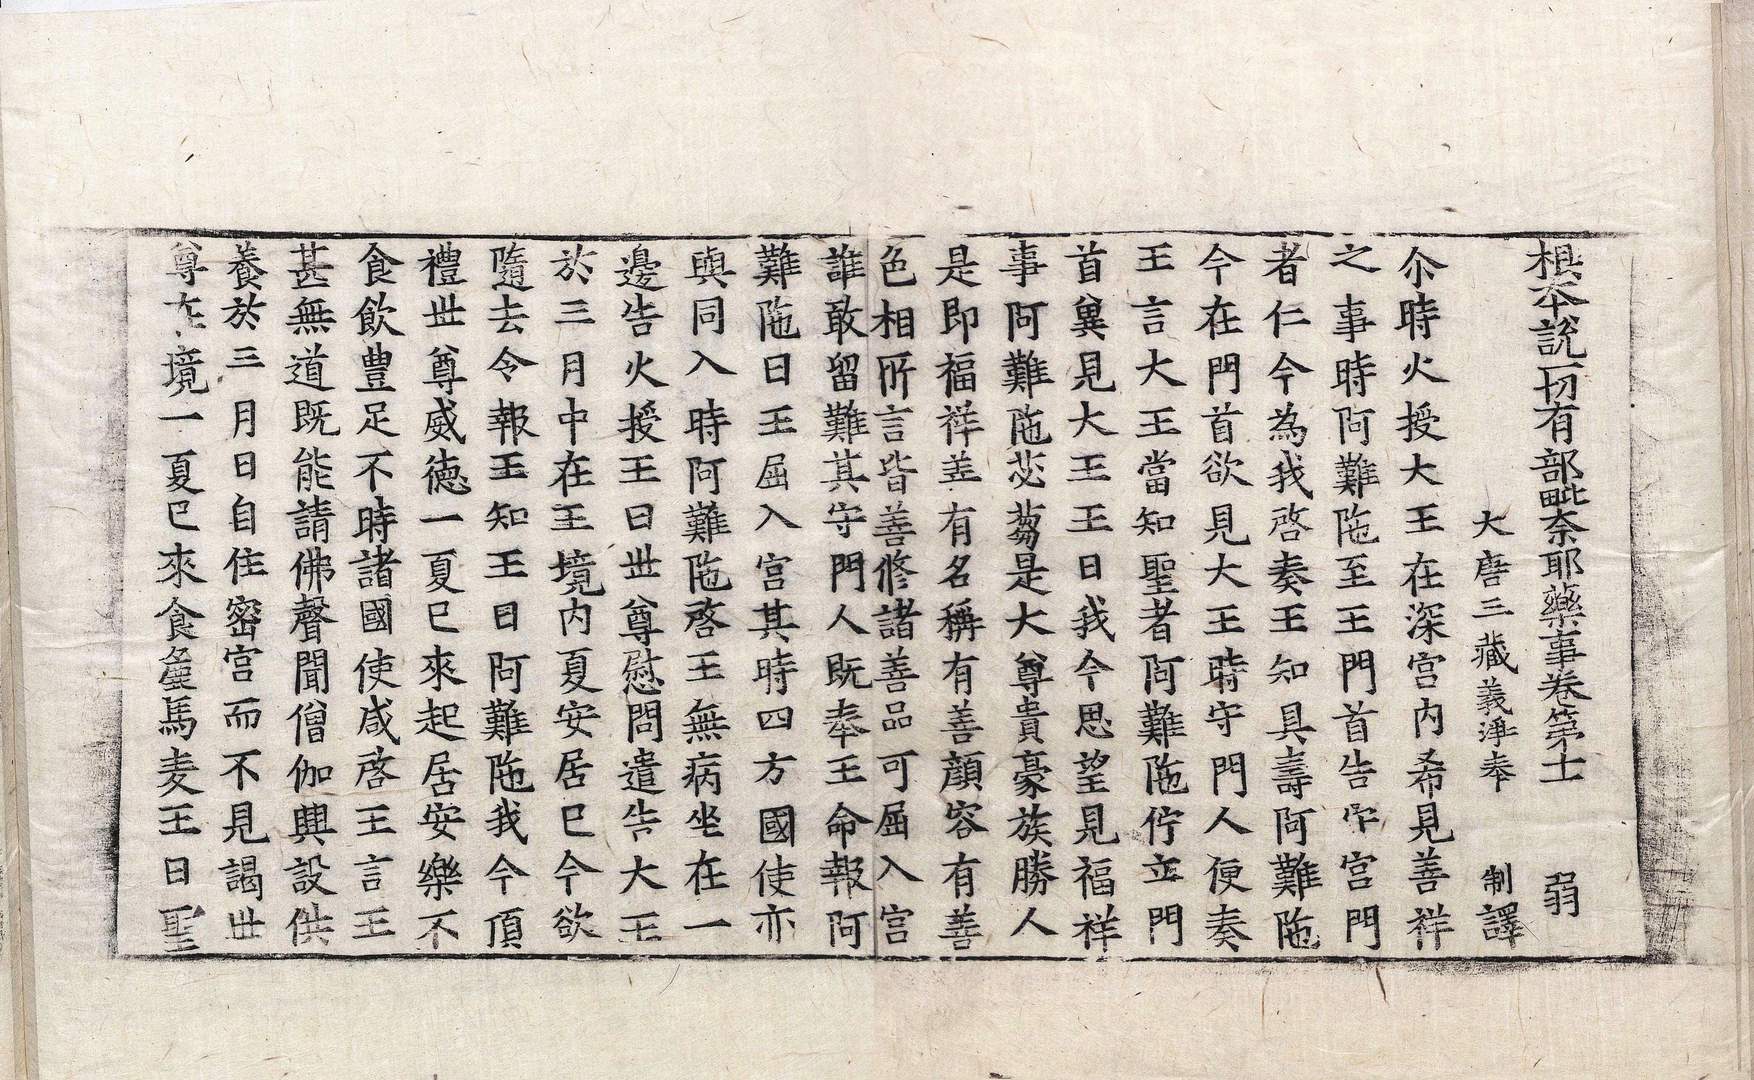 根本說一切有部毗奈耶藥事卷第十一 弱
大唐三藏義淨奉 制譯
尒時火授大王在深宮內希見善祥
之事時阿難陁至王門首告守宮門
者仁今為我啓奏王知具壽阿難陁
今在門首欲見大王時守門人便奏
王言大王當知聖者阿難陁佇立門
首冀見大王王曰我今思望見福祥
事阿難陁苾芻是大尊貴豪族勝人
是即福祥善有名稱有善顏容有善
色相所言皆善修諸善品可屈入宮
誰敢留難其守門人既奉王命報阿
難陁曰王屈入宮其時四方國使亦
與同入時阿難陁啓王無病坐在一
邊告火授王曰世尊慰問遣告大王
於三月中在王境內夏安居已今欲
隨去令報王知王曰阿難陁我今頂
禮世尊威德一夏已來起居安樂不
食飲豐足不時諸國使咸啓王言王
甚無道既能請佛聲聞僧伽興設供
養於三月日自住密宮而不見謁世
尊在境一夏已來食麁馬麦王曰聖